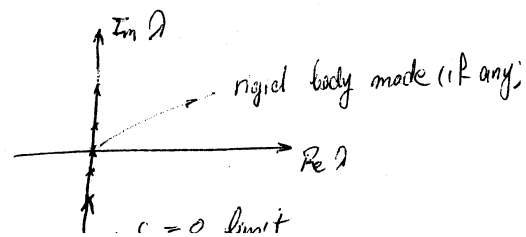 Im λ
rigid body mode (if any)
Re λ
= 0 limit